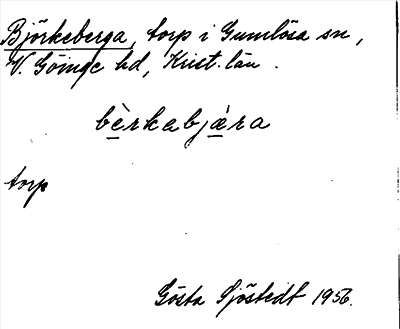 Björkeberga, torp i Gumlösa sn,
V. Göinge hd, Krist. län.
bèrkabjæra
torp
Gösta Sjöstedt 1956.